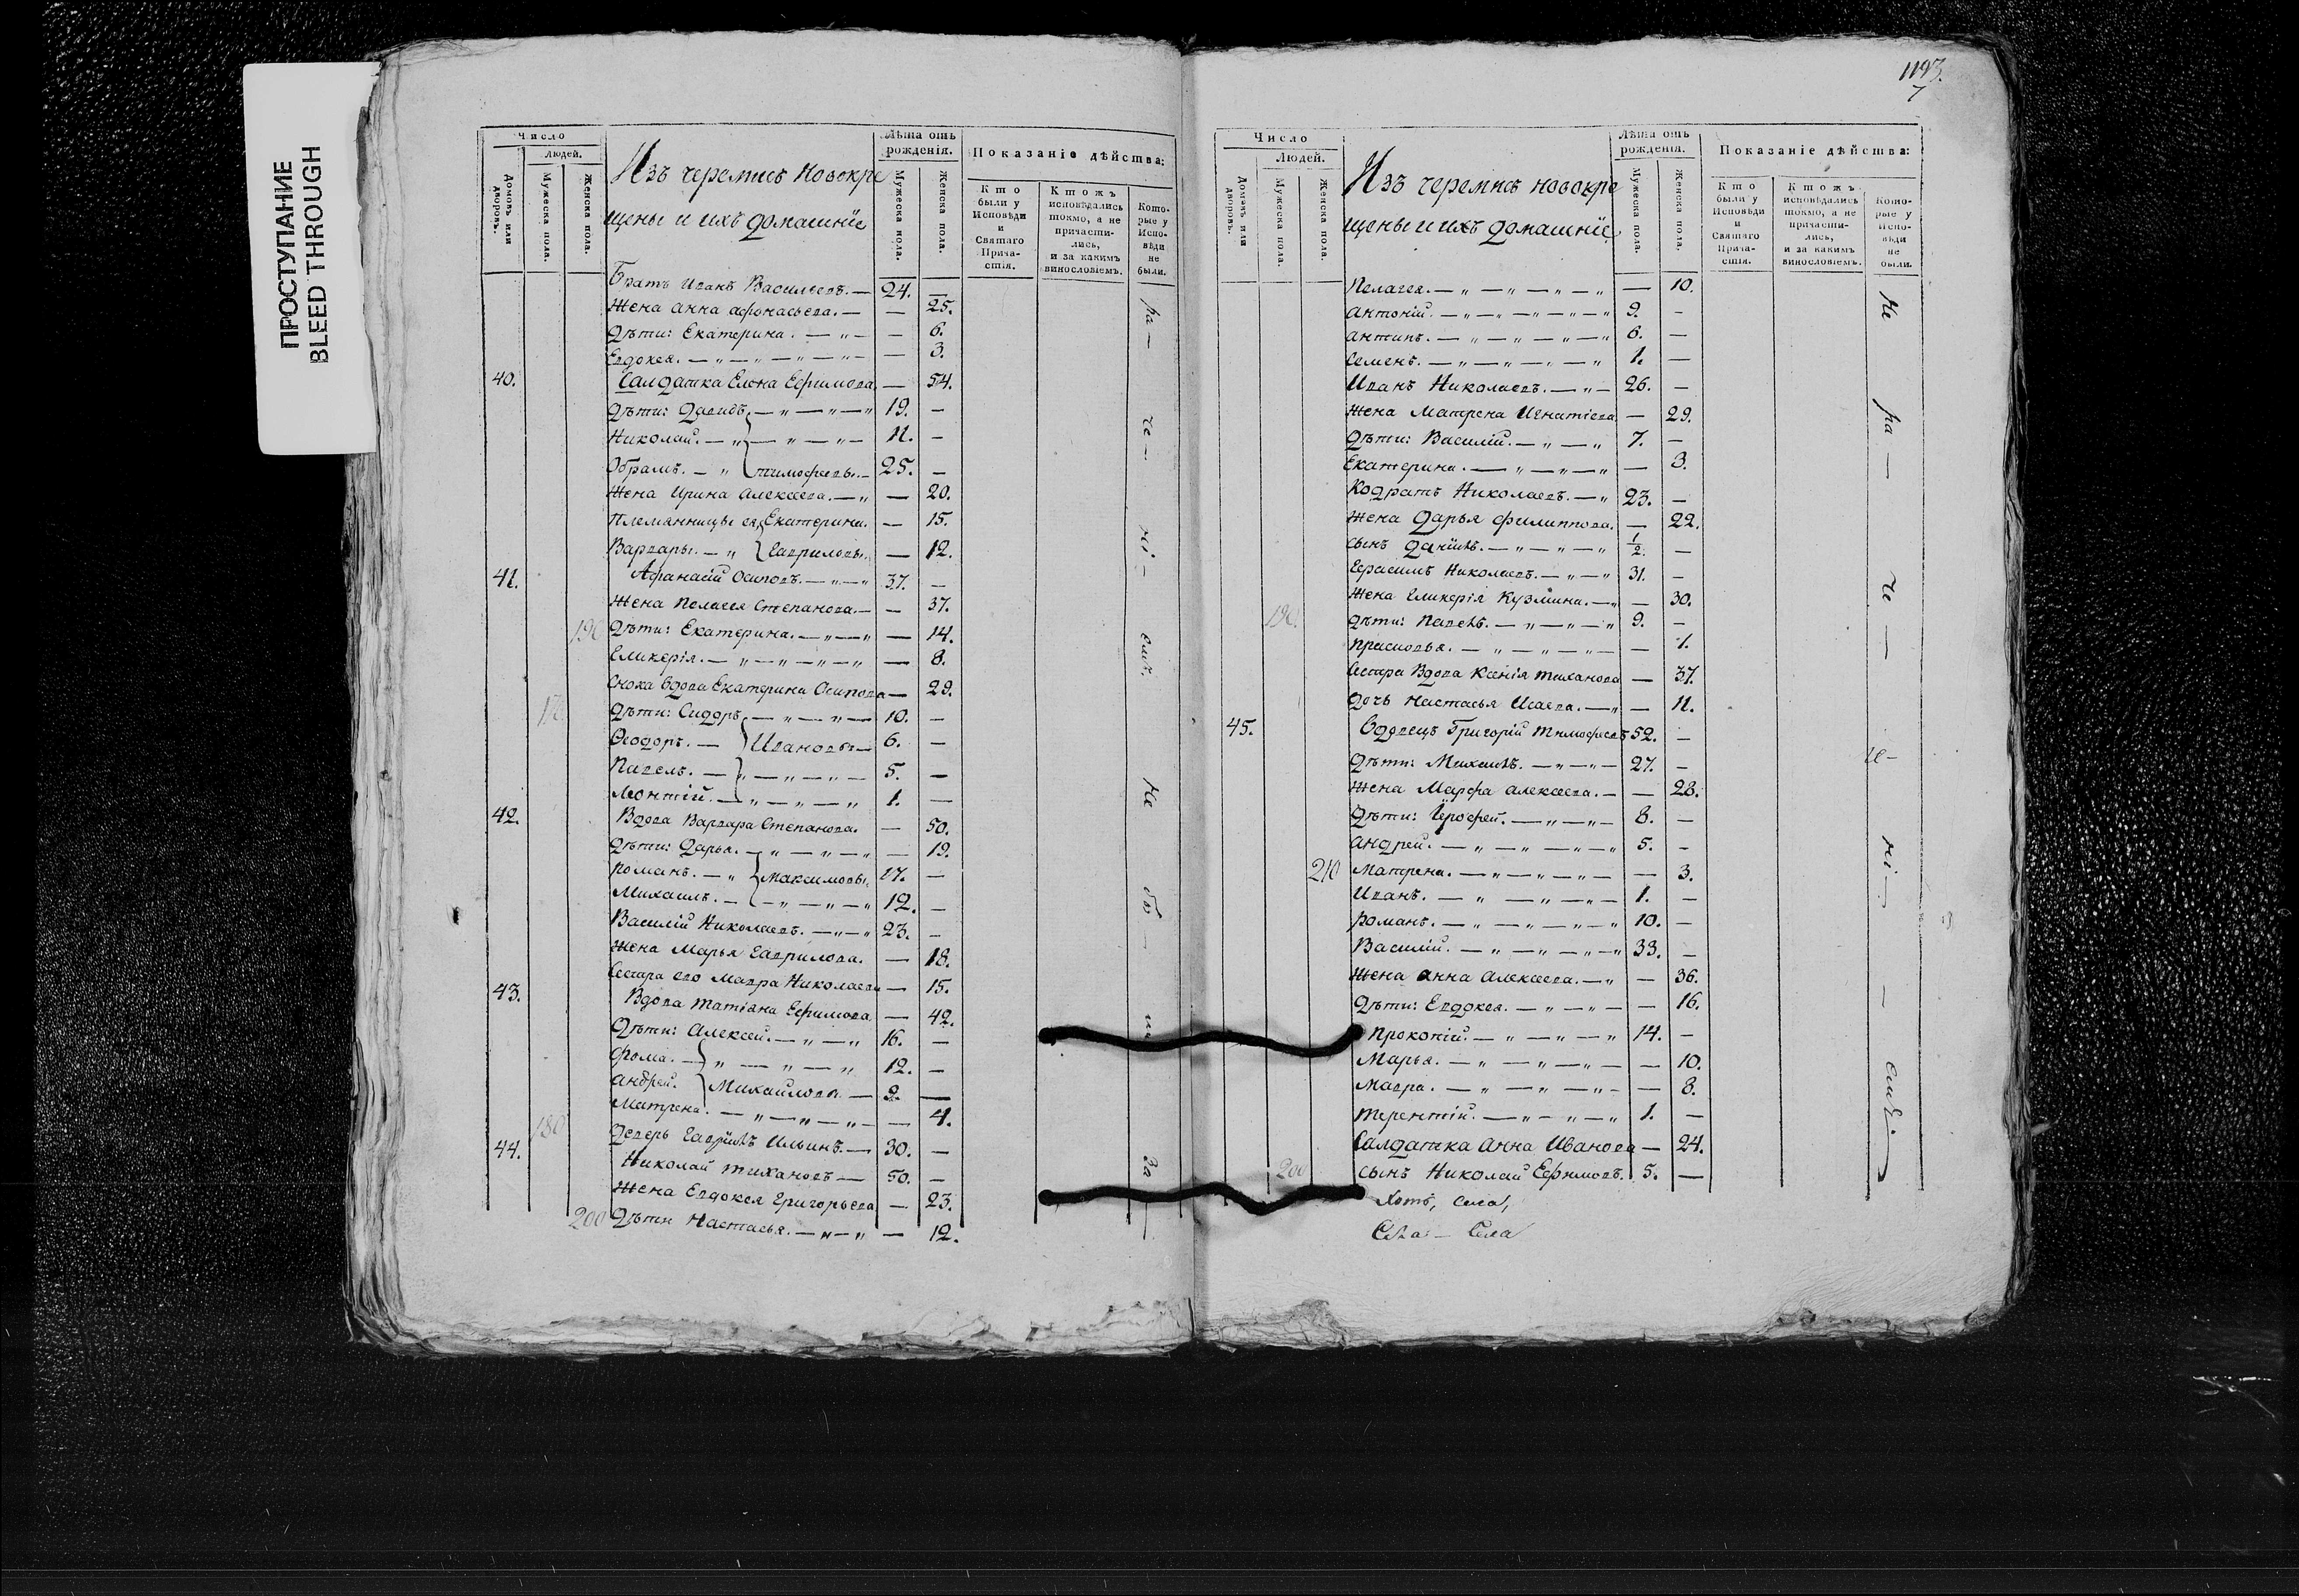 ПРОСТУПАНИЕ
BLEED THROUGH
Число
Людей.
Домовъ или дворовъ.
Мужеска пола.
Женска пола.
Изъ черемисъ новокре
щены и ихъ домашніе
Лѣта отъ рожденія.
Мужеска пола.
Женска пола.
Показаніе дѣйства:
Кто были у Исповѣди и Святаго Прича-стія.
Ктожъ исповѣдались токмо, а не причасти-лись, и за какимъ винословіемъ.
Кото-рые у Испо-вѣди не были.
Братъ Иванъ Васильевъ. — 24. —
Жена Анна Афонасьева. — — 25.
Дѣти: Екатерина. — „ — — 6.
Евдокея. — „ — „ — „ — „ — — 3.
40. Салдатка Елена Ефимова — 54.
Дѣти: Давидъ, — „ — „ — „ 19. —
Николай. — „ — „ — „ — 11. —
Обрамъ. — „ тимофеевы. — 25. —
Жена Ирина Алексеева. — „ — 20.
Племянницы ея, Екатерина. — 15.
Варвары. — „ Гавриловы. — 12.
41. Афанасій Осиповъ. — „ — „ 37. —
Жена Пелагея Степанова. — — 37.
190 Дѣти: Екатерина. — „ — „ — 14.
Гликерія. — „ — „ — „ — „ — 8.
Сноха вдова Екатерина Осипова — 29.
Дѣти: Сидоръ, — „ — „ — 10. —
Ѳеодоръ. — Ивановы — 6. —
Павелъ. — „ — „ — „ — 5. —
Леонтій. — „ — „ — „ 1. —
42. Вдова Варвара Степанова. — 50.
Дѣти: Дарья. — „ — „ — „ — 19.
Романъ. — „ Максимовы. 17. —
Михаилъ. — — „ — „ — „ 12. —
Василій Николаевъ. — „ — „ 23. —
Жена Марья Гаврилова. — 18.
Сестра его Мавра Николаева — 15.
43. Вдова Татіана Ефимова. — 42.
Дѣти: Алексей. — „ — „ 16. —
Фома. — „ — „ — „ 12. —
Андрей. Михайловы — 2. —
Матрена. — „ — „ — „ — — 4.
180 Деверь Гавріилъ Ильинъ. — 30. —
44. Николай Тихановъ — 50. —
Жена Евдокея Григорьева — 23.
200 Дѣти Настасья. — „ — „ — 12.
За не ра че ні емъ. Не бы
1193.
7
Число
Людей.
Домовъ или дворовъ.
Мужеска пола.
Женска пола.
Изъ черемисъ новокре
щены и ихъ домашніе
Лѣта отъ рожденія.
Мужеска пола.
Женска пола.
Показаніе дѣйства:
Кто были у Исповѣди и Святаго Прича-стія.
Ктожъ исповѣдались токмо, а не причасти-лись, и за какимъ винословіемъ.
Кото-рые у Испо-вѣди не были.
Пелагея. — „ — „ — „ — „ — 10.
Антоній. — „ — „ — „ — „ — „ 9. —
Антипъ. — „ — „ — „ — „ 6. —
Семенъ. — „ — „ — „ — „ 1. —
Иванъ Николаевъ. — „ — 26. —
Жена Матрена Игнатіева. — 29.
Дѣти: Василій. — „ — „ 7. —
Екатерина. — „ — „ — „ — 3.
Кодратъ Николаевъ. — „ 23. —
Жена Дарья Филиппова. — 22.
Сынъ Даніилъ. — „ — „ — „ 1/2. —
Герасимъ Николаевъ. — „ — „ 31. —
Жена Гликерія Кузмина. — „ — 30.
190. Дѣти: Павелъ. — „ — „ — „ 9. —
Прасковья. — „ — „ — „ — — 1.
Сестра Вдова Ксенія Тиханова — 37.
Дочь Настасья Исаева. — „ — 11.
45. Вдовецъ Григорій Тимофеевъ 52. —
Дѣти: Михаилъ. — „ — „ — 27. —
Жена Марфа Алексеева. — — 28.
Дѣти: Ерофей. — „ — „ — 8. —
Андрей. — „ — „ — „ — „ 5. —
210 Матрена. — „ — „ — „ — — 3.
Иванъ. — „ — „ — „ — 1. —
Романъ. — „ — „ — „ — „ 10. —
Василій. — „ — „ — „ — „ 33. —
Жена Анна Алексеева. — „ — 36.
Дѣти: Евдокея. — „ — „ — — 16.
Прокопій. — „ — „ — „ 14. —
Марья. — „ — „ — „ — — 10.
Мавра. — „ — „ — „ — — 8.
Терентій. — „ — „ — „ 1. —
Салдатка Анна Иванова — 24.
200 Сынъ Николай Ефимовъ. 5. —
Не ра — че —